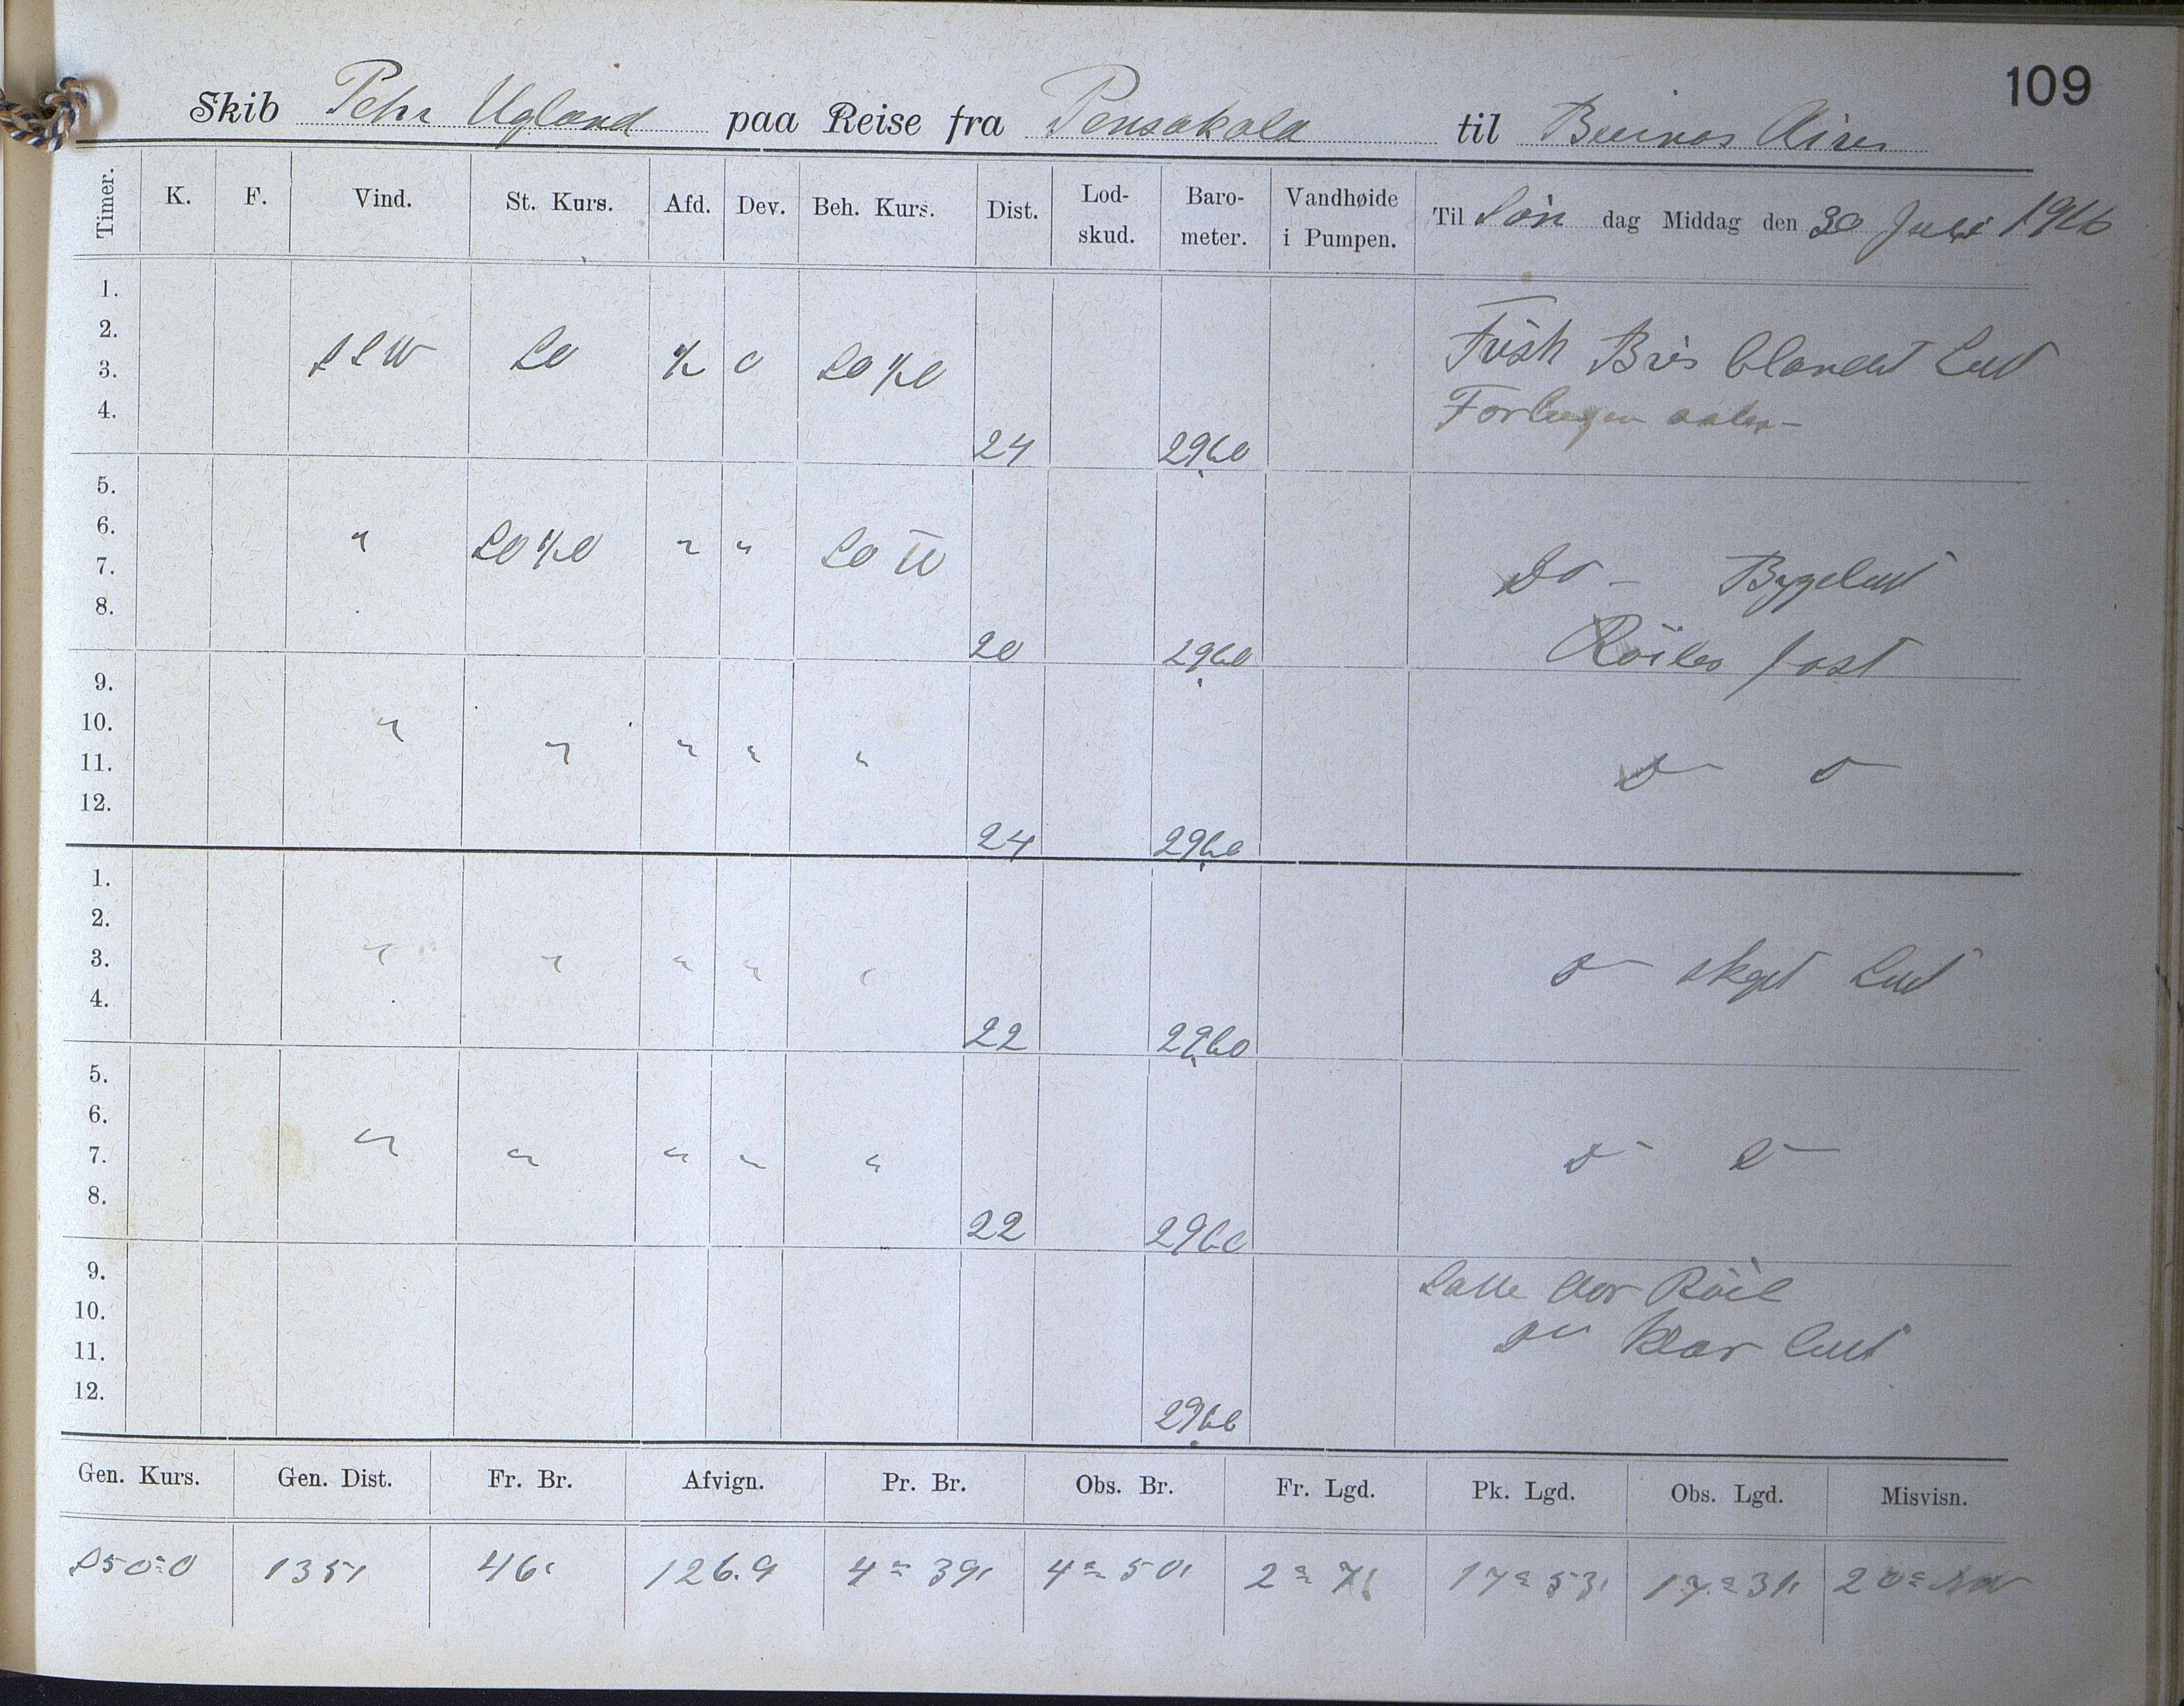 109
Skib Pehr Ugland paa Reise fra Pensakola til Buinos Aires
Timer. K. F. Vind. St. Kurs. Afd. Dev. Beh. Kurs. Dist. Lod-skud. Baro-meter. Vandhøide i Pumpen. Til Søn dag Middag den 30 Juli 1916
1.
2. Frisk Bris blandet Luft
3. SSW SO ½ 0 SO½O
4. 24 29,60
5.
6. " SO½O " " SO
7. Do - Bygeluft
8. 20 29,60 Röiler fast
9.
10. "
11. " " " " Do Do
12. 24 29,60
1.
2.
3. " " " " " Do skyet Luft
4. 22 29,60
5.
6. "
7. " " " " Do Do
8. 22 29,60
9. Satte Stor Röil
10. Do klar luft
11.
12. 29,66
Gen. Kurs. Gen. Dist. Fr. Br. Afvign. Pr. Br. Obs. Br. Fr. Lgd. Pk. Lgd. Obs. Lgd. Misvisn.
S50°O 135, 46, 126.9 4° 39, 4° 50, 2° 7, 17° 53, 17° 31, 20° NW